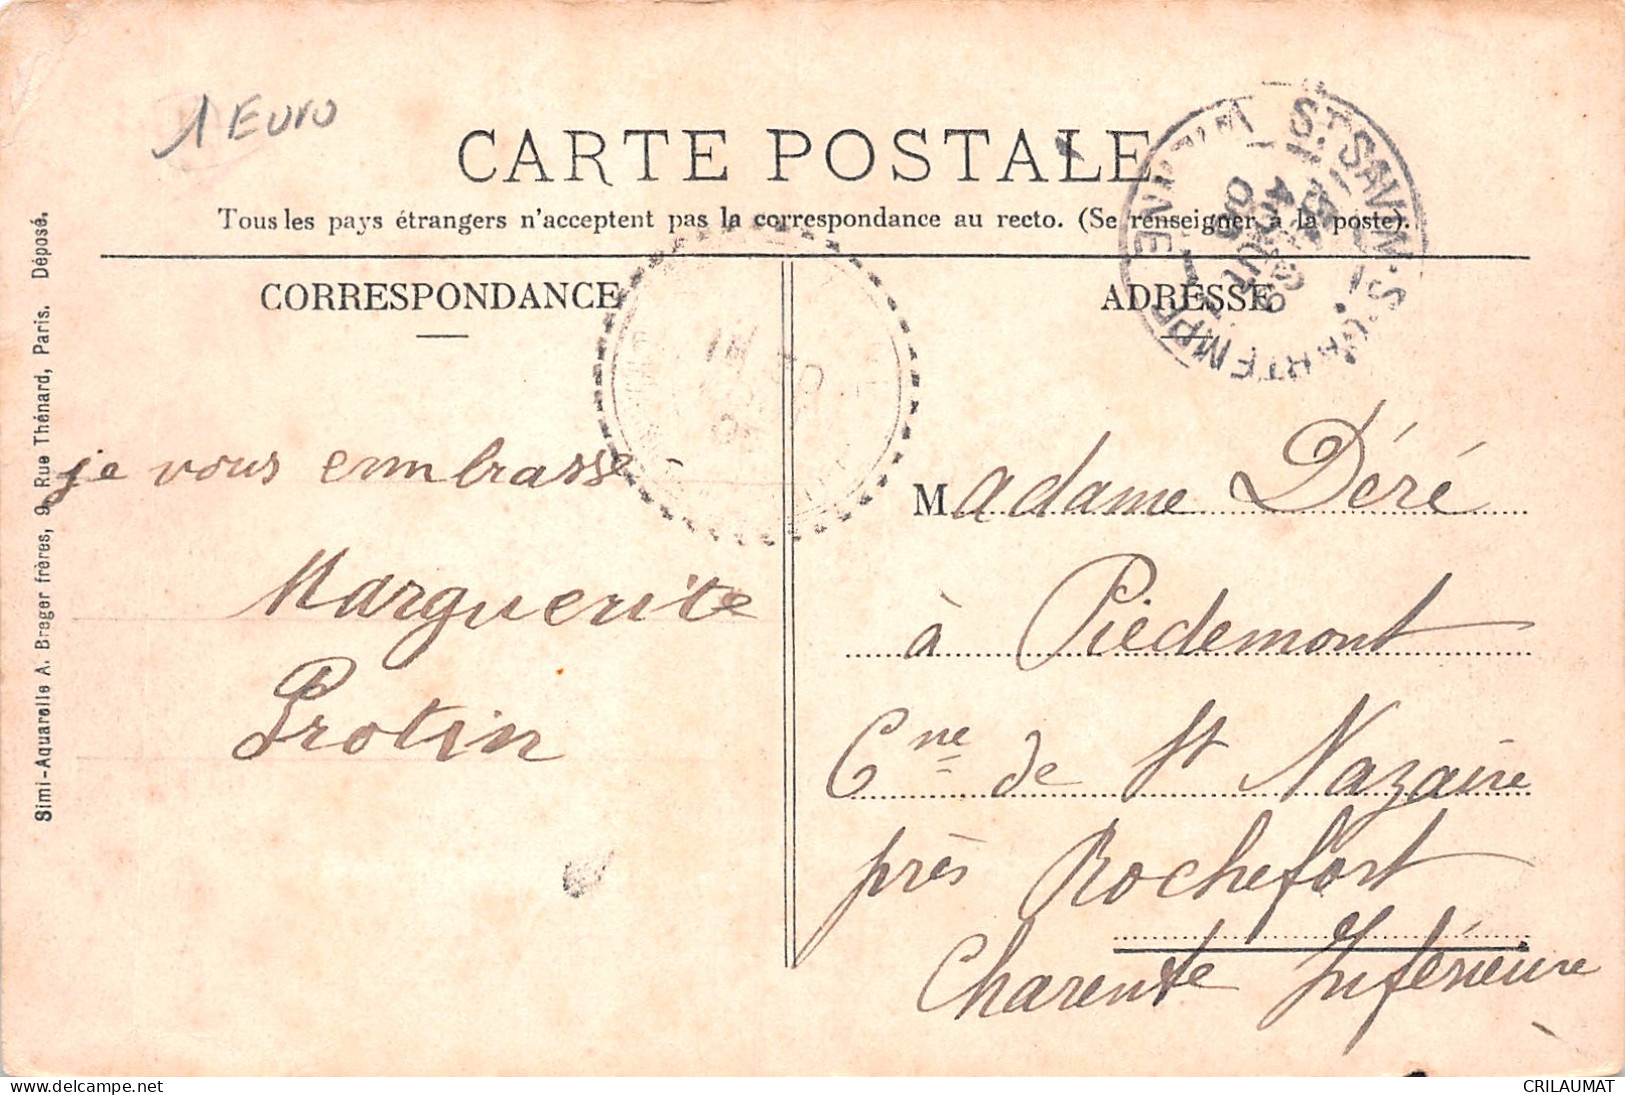 1 Euro
CARTE POSTALE
Tous les pays étrangers n'acceptent pas la correspondance au recto. (Se renseigner à la poste).
CORRESPONDANCE
je vous emmbrasse
Marguerite
Protin
ADRESSE
Madame Déré
à Piedemont
Cne de St Nazaire
près Rochefort
Charente Inférieure
ST SAVIN-S-GARTEMPE
VIENNE
AOUT
Simi-Aquarelle A. Breger frères, 9, Rue Thénard, Paris. Déposé.
www.delcampe.net
CRILAUMAT